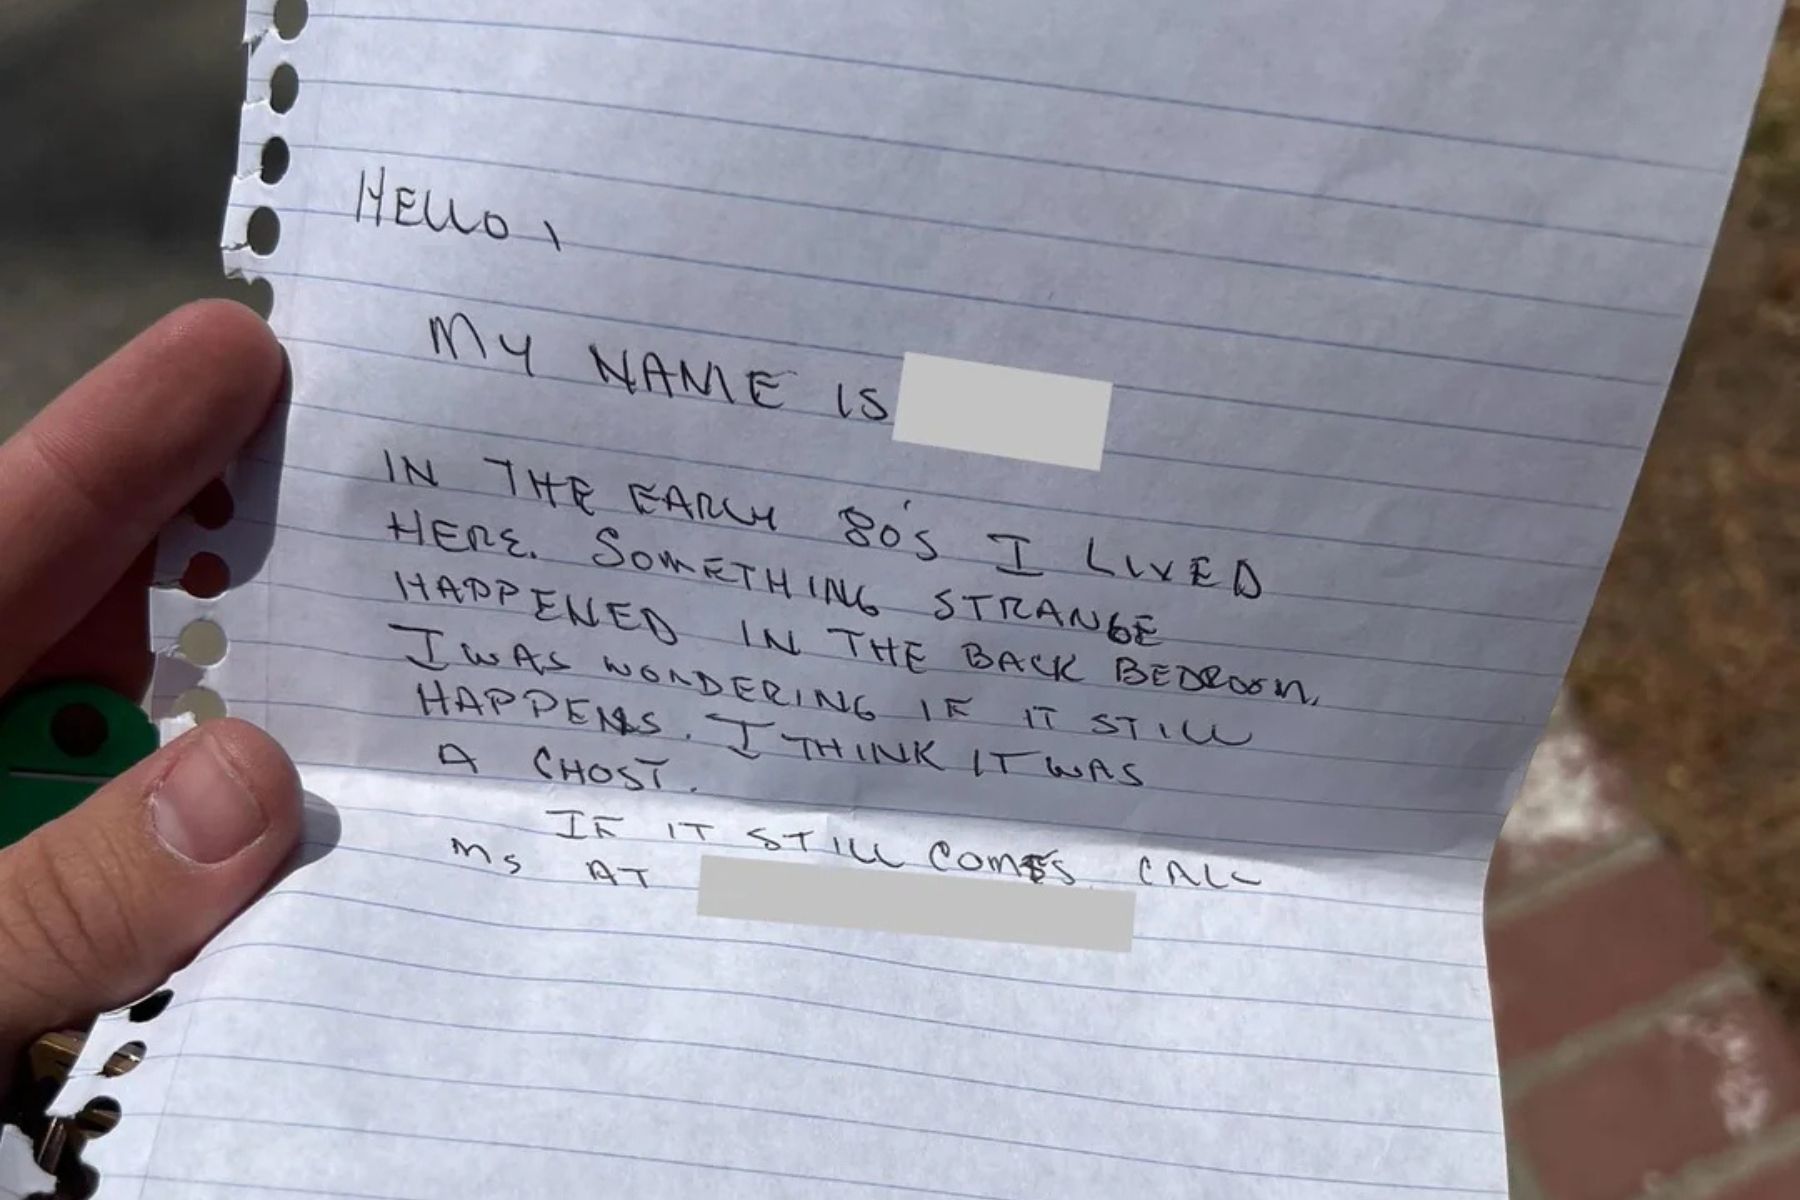 HELLO,
MY NAME IS
IN THE EARLY 80'S I LIVED
HERE. SOMETHING STRANGE
HAPPENED IN THE BACK BEDROOM,
I WAS WONDERING IF IT STILL
HAPPENS. I THINK IT WAS
A GHOST.
IF IT STILL COMES CALL
ME AT